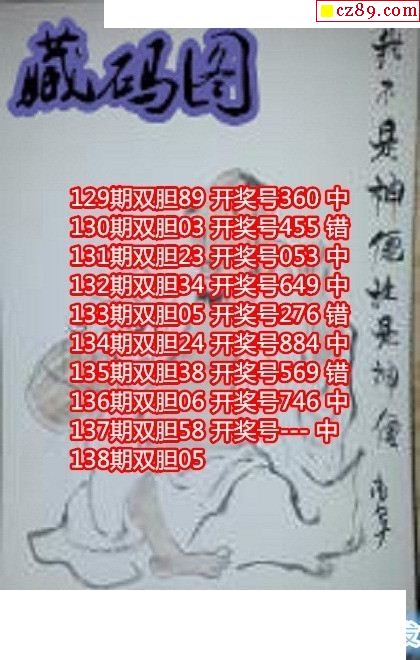 cz89.com
藏码图
129期双胆89 开奖号360 中
130期双胆03 开奖号455 错
131期双胆23 开奖号053 中
132期双胆34 开奖号649 中
133期双胆05 开奖号276 错
134期双胆24 开奖号884 中
135期双胆38 开奖号569 错
136期双胆06 开奖号746 中
137期双胆58 开奖号--- 中
138期双胆05
我不是神僊
是神僊